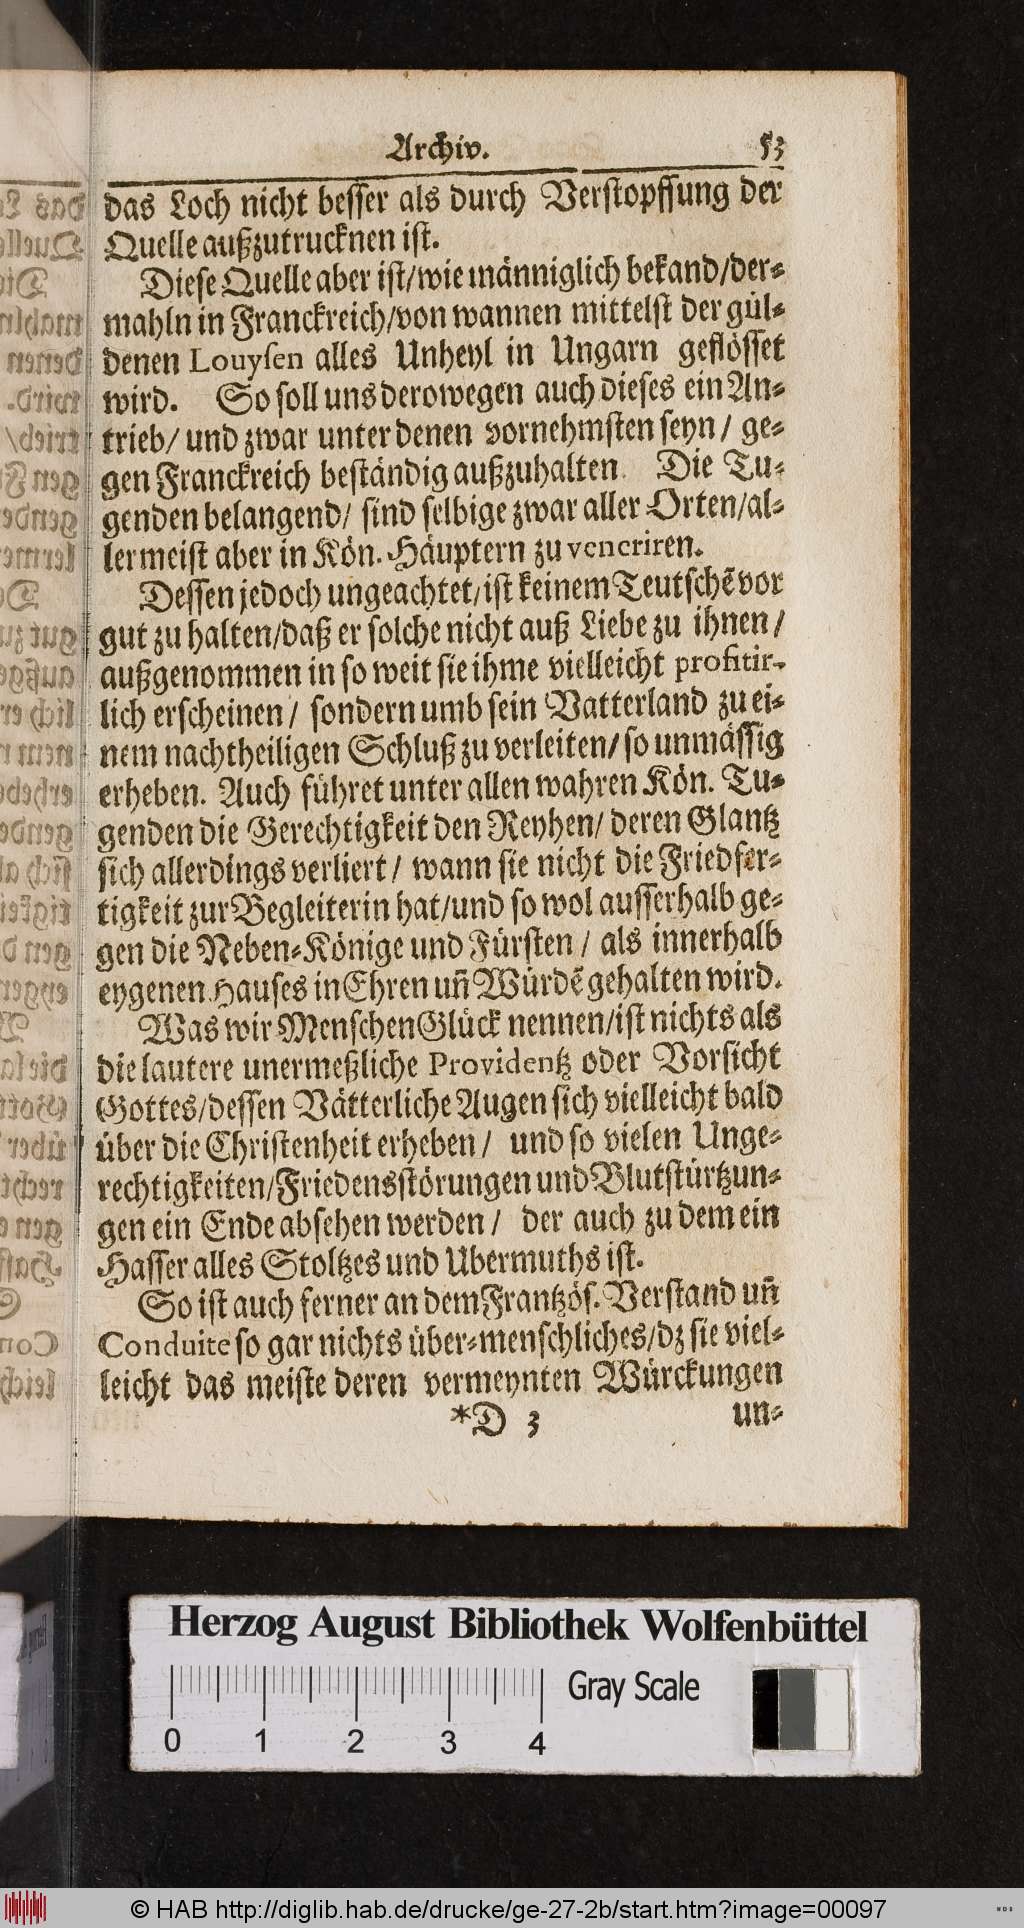 Archiv. 53
das Loch nicht besser als durch Verstopffung der
Quelle außzutrucknen ist.
Diese Quelle aber ist/wie männiglich bekand/der-
mahln in Franckreich/von wannen mittelst der gül-
denen Louysen alles Unheyl in Ungarn geflösset
wird. So soll uns derowegen auch dieses ein An-
trieb/ und zwar unter denen vornehmsten seyn/ ge-
gen Franckreich beständig außzuhalten. Die Tu-
genden belangend/ sind selbige zwar aller Orten/al-
lermeist aber in Kön. Häuptern zu veneriren.
Dessen jedoch ungeachtet/ist keinem Teutschẽ vor
gut zu halten/daß er solche nicht auß Liebe zu ihnen/
außgenommen in so weit sie ihme vielleicht profitir-
lich erscheinen/ sondern umb sein Vatterland zu ei-
nem nachtheiligen Schluß zu verleiten/ so unmässig
erheben. Auch führet unter allen wahren Kön. Tu-
genden die Gerechtigkeit den Reyhen/ deren Glantz
sich allerdings verliert/ wann sie nicht die Friedfer-
tigkeit zur Begleiterin hat/und so wol ausserhalb ge-
gen die Neben-Könige und Fürsten/ als innerhalb
eygenen Hauses in Ehren uñ Würdẽ gehalten wird.
Was wir Menschen Glück nennen/ist nichts als
die lautere unermeßliche Providentz oder Vorsicht
Gottes/dessen Vätterliche Augen sich vielleicht bald
über die Christenheit erheben/ und so vielen Unge-
rechtigkeiten/Friedensstörungen und Blutstürtzun-
gen ein Ende absehen werden/ der auch zu dem ein
Hasser alles Stoltzes und Ubermuths ist.
So ist auch ferner an dem Frantzös. Verstand uñ
Conduite so gar nichts über-menschliches/dz sie viel-
leicht das meiste deren vermeynten Würckungen
*D 3 un-
Herzog August Bibliothek Wolfenbüttel
Gray Scale
0 1 2 3 4
© HAB http://diglib.hab.de/drucke/ge-27-2b/start.htm?image=00097